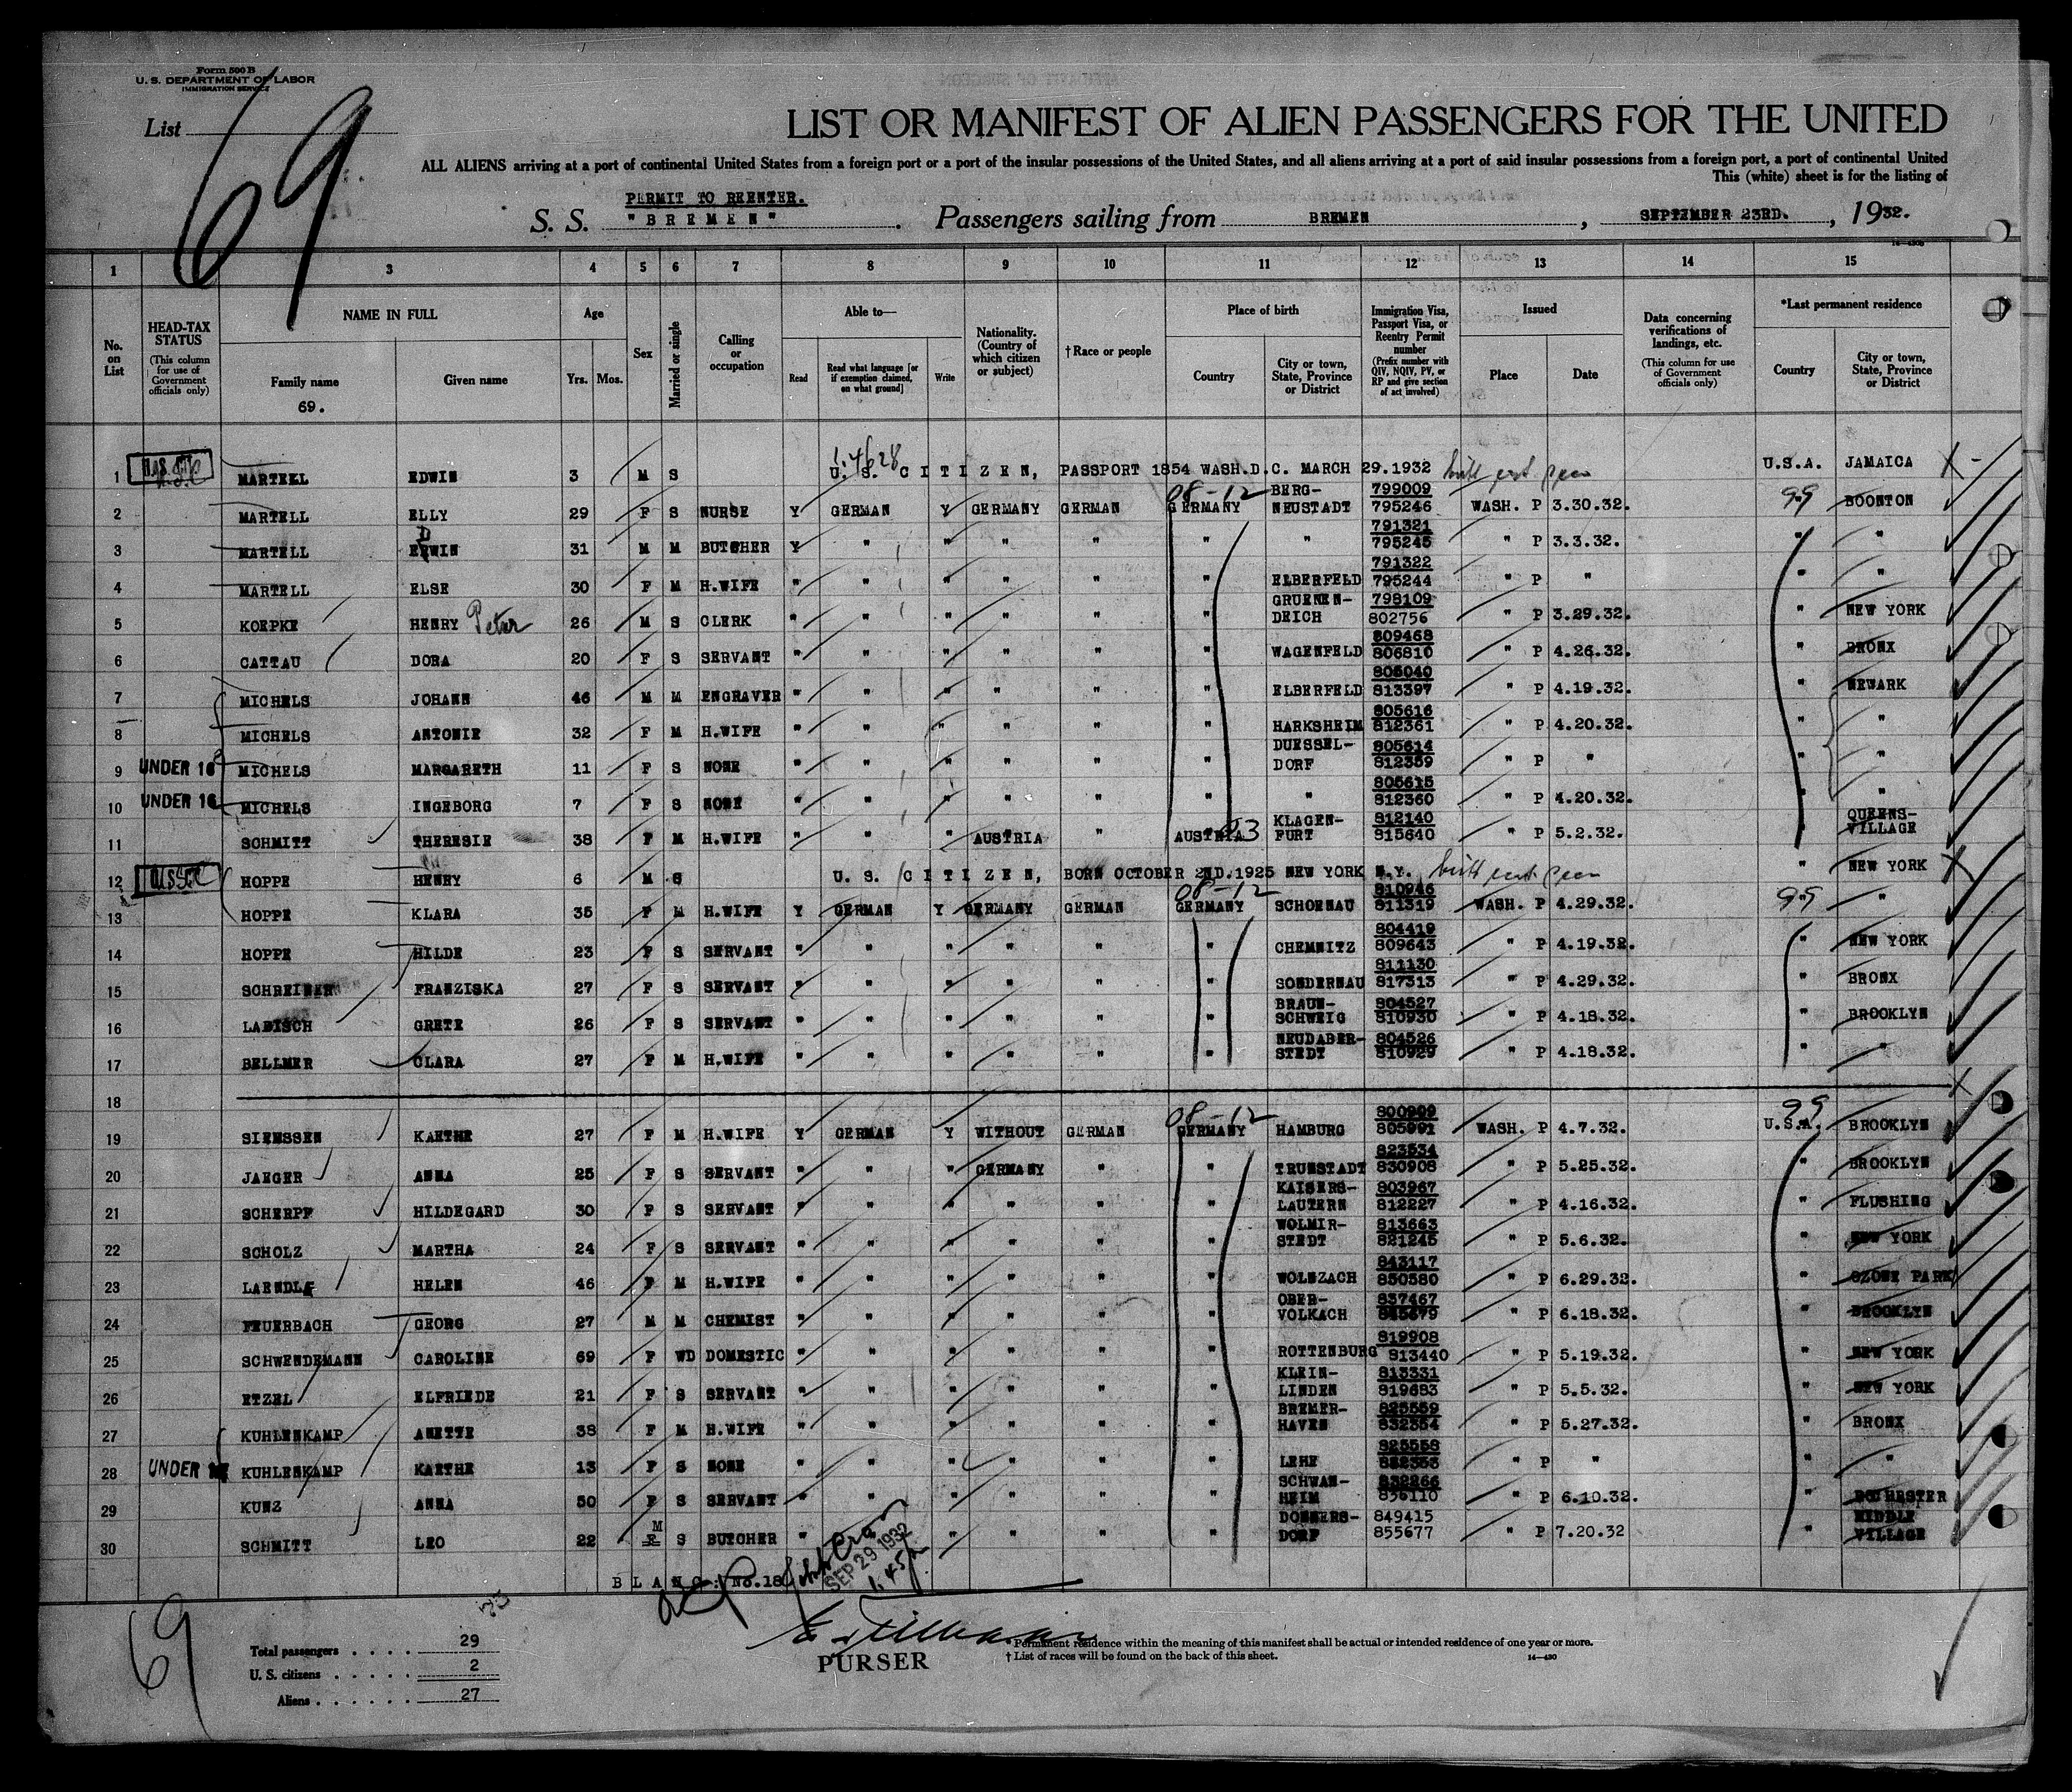 Form 500 B
U. S. DEPARTMENT OF LABOR
IMMIGRATION SERVICE
List
69
LIST OR MANIFEST OF ALIEN PASSENGERS FOR THE UNITED
ALL ALIENS arriving at a port of continental United States from a foreign port or a port of the insular possessions of the United States, and all aliens arriving at a port of said insular possessions from a foreign port, a port of continental United
This (white) sheet is for the listing of
PERMIT TO REENTER.
S. S. "BREMEN". Passengers sailing from BREMEN, SEPTEMBER 23RD., 1932.
1 3 4 5 6 7 8 9 10 11 12 13 14 15
No. on List
HEAD-TAX STATUS (This column for use of Government officials only)
NAME IN FULL Family name Given name
69.
Age Yrs. Mos.
Sex
Married or single
Calling or occupation
Able to— Read Read what language [or if exemption claimed, on what ground] Write
Nationality. (Country of which citizen or subject)
†Race or people
Place of birth Country City or town, State, Province or District
Immigration Visa, Passport Visa, or Reentry Permit number (Prefix number with QIV, NQIV, PV, or RP and give section of act involved)
Issued Place Date
Data concerning verifications of landings, etc. (This column for use of Government officials only)
*Last permanent residence Country City or town, State, Province or District
1 MARTELL EDWIN 3 M S U. S. CITIZEN, PASSPORT 1854 WASH.D.C. MARCH 29.1932 U.S.A. JAMAICA
2 MARTELL ELLY 29 F S NURSE Y GERMAN Y GERMANY GERMAN GERMANY 08-12 BERG-NEUSTADT 799009 795246 WASH. P 3.30.32. 99 BOONTON
3 MARTELL ERWIN 31 M M BUTCHER Y " " " " " " 791321 795245 " P 3.3.32. " "
4 MARTELL ELSE 30 F M H.WIFE " " " " " " ELBERFELD 791322 795244 " P " " "
5 KOEPKE HENRY Peter 26 M S CLERK " " " " " " GRUENEN-DEICH 798109 802756 " P 3.29.32. " NEW YORK
6 CATTAU DORA 20 F S SERVANT " " " " " " WAGENFELD 809468 806810 " P 4.26.32. " BRONX
7 MICHELS JOHANN 46 M M ENGRAVER " " " " " " ELBERFELD 805040 813397 " P 4.19.32. " NEWARK
8 MICHELS ANTONIE 32 F M H.WIFE " " " " " " HARKSHEIM 805616 812361 " P 4.20.32. " "
9 UNDER 16 MICHELS MARGARETH 11 F S NONE " " " " " " DUESSEL-DORF 805614 812359 " P " " "
10 UNDER 16 MICHELS INGEBORG 7 F S NONE " " " " " " " 805615 812360 " P 4.20.32. " "
11 SCHMITT THERESIE 38 F M H.WIFE " " " AUSTRIA " AUSTRIA KLAGEN-FURT 812140 815640 " P 5.2.32. QUEENS-VILLAGE
12 HOPPE HENRY 6 M S U. S. CITIZEN, BORN OCTOBER 2ND.1925 NEW YORK N.Y. " NEW YORK
13 HOPPE KLARA 35 F M H.WIFE Y GERMAN Y GERMANY GERMAN GERMANY 08-12 SCHOENAU 810946 811319 WASH. P 4.29.32. 99 "
14 HOPPE HILDE 23 F S SERVANT " " " " " " CHEMNITZ 804419 809643 " P 4.19.32. " NEW YORK
15 SCHREINER FRANZISKA 27 F S SERVANT " " " " " " SONDERNAU 811130 817313 " P 4.29.32. " BRONX
16 LABISCH GRETE 26 F S SERVANT " " " " " " BRAUN-SCHWEIG 804527 810930 " P 4.18.32. " BROOKLYN
17 BELLMER CLARA 27 F M H.WIFE " " " " " " NEUDABER-STEDT 804526 810929 " P 4.18.32. " "
18
19 SIEMSSEN KAETHE 27 F M H.WIFE Y GERMAN Y WITHOUT GERMAN GERMANY 08-12 HAMBURG 800909 805991 WASH. P 4.7.32. 99 U.S.A. BROOKLYN
20 JAEGER ANNA 25 F S SERVANT " " " GERMANY " " TRUNSTADT 823534 830908 " P 5.25.32. " BROOKLYN
21 SCHERPF HILDEGARD 30 F S SERVANT " " " " " " KAISERS-LAUTERN 803967 812227 " P 4.16.32. " FLUSHING
22 SCHOLZ MARTHA 24 F S SERVANT " " " " " " WOLMIR-STEDT 813663 821245 " P 5.6.32. " NEW YORK
23 LAENDLE HELEN 46 F M H.WIFE " " " " " " WOLNZACH 843117 850580 " P 6.29.32. " OZONE PARK
24 FEUERBACH GEORG 27 M M CHEMIST " " " " " " OBER-VOLKACH 837467 845679 " P 6.18.32. " BROOKLYN
25 SCHWENDEMANN CAROLINE 69 F WD DOMESTIC " " " " " " ROTTENBURG 819908 813440 " P 5.19.32. " NEW YORK
26 ETZEL ELFRIEDE 21 F S SERVANT " " " " " " KLEIN-LINDEN 813331 819683 " P 5.5.32. " NEW YORK
27 KUHLENKAMP ANETTE 38 F M H.WIFE " " " " " " BREMER-HAVEN 825559 832354 " P 5.27.32. " BRONX
28 UNDER KUHLENKAMP KAETHE 13 F S NONE " " " " " " LEHE 825558 832353 " P " " "
29 KUNZ ANNA 50 F S SERVANT " " " " " " SCHWAN-HEIM 832266 836110 " P 6.10.32. " ROCHESTER
30 SCHMITT LEO 22 M S BUTCHER " " " " " " DONNERS-DORF 849415 855677 " P 7.20.32 " MIDDLE VILLAGE
BLANC: No.18
SEP 29 1932
1.45 p
69
Total passengers 29
U. S. citizens 2
Aliens 27
PURSER
* Permanent residence within the meaning of this manifest shall be actual or intended residence of one year or more.
† List of races will be found on the back of this sheet.
14—430